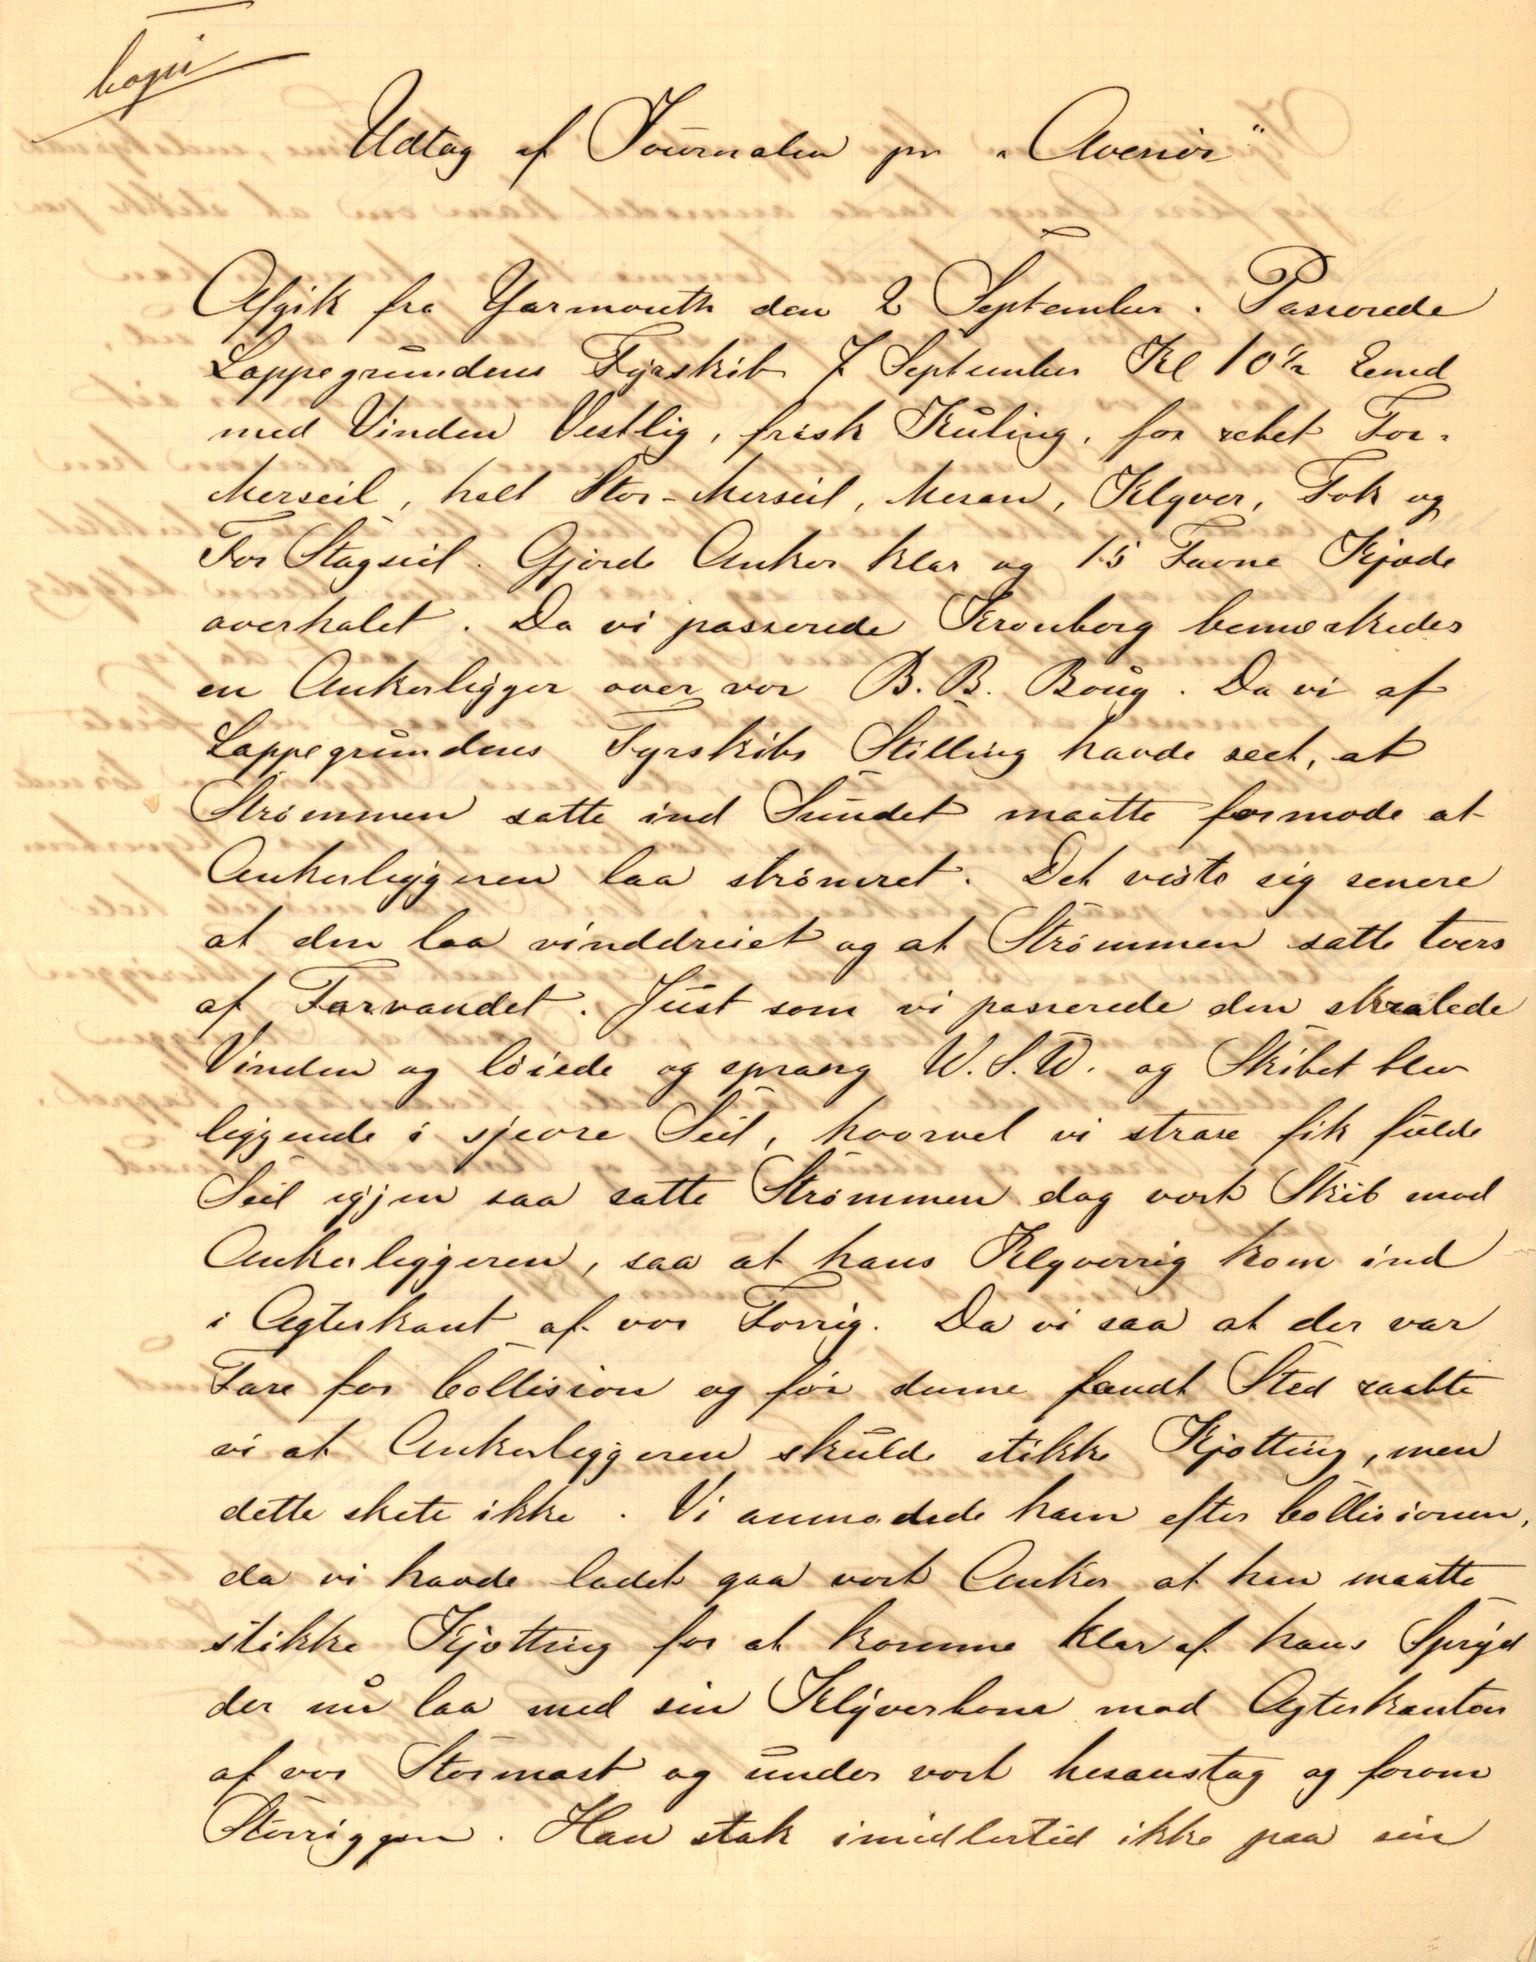 Copi
Udtog af Journalen pr "Avenir"
Afgik fra Yarmouth den 2 September. Passerede
Lappegrundens Fyrskib 7 September Kl 10½ Emd
med Vinden Vestlig, frisk Kuling, for rebet For-
Merseil, helt Stor-Merseil, Mesan, Klyver, Fok og
For Stagseil. Gjorde Anker klar og 15 Favne Kjæde
overhalet. Da vi passerede Kronborg bemærkedes
en Ankerligger over vor B.B. Boug. Da vi af
Lappegrundens Fyrskibs Stilling havde seet, at
Strømmen satte ind Sundet maatte formode at
Ankerliggeren laa strømret. Det viste sig senere
at den laa vinddreiet og at Strømmen satte tvers
af Farvandet. Just som vi passerede den skralede
Vinden og løiede og sprang W.S.W. og Skibet blev
liggende i sjevre Seil, hvorvel vi strax fik fulde
Seil igjen saa satte Strømmen dog vort Skib mod
Ankerliggeren, saa at hans Klyverrig kom ind
i Agterkant af vor Forrig. Da vi saa at der var
Fare for Collision og før denne fandt Sted raabte
vi at Ankerliggeren skulde stikke Kjetting, men
dette skete ikke. Vi anmodede ham efter Collisionen,
da vi havde ladet gaa vort Anker at han maatte
stikke Kjetting for at komme klar af hans Spryd
der nu laa med sin Klyverbom mod Agterkanten
af vor Stormast og under vort Mesanstag og forom
Storriggen. Han stak imidlertid ikke paa sin